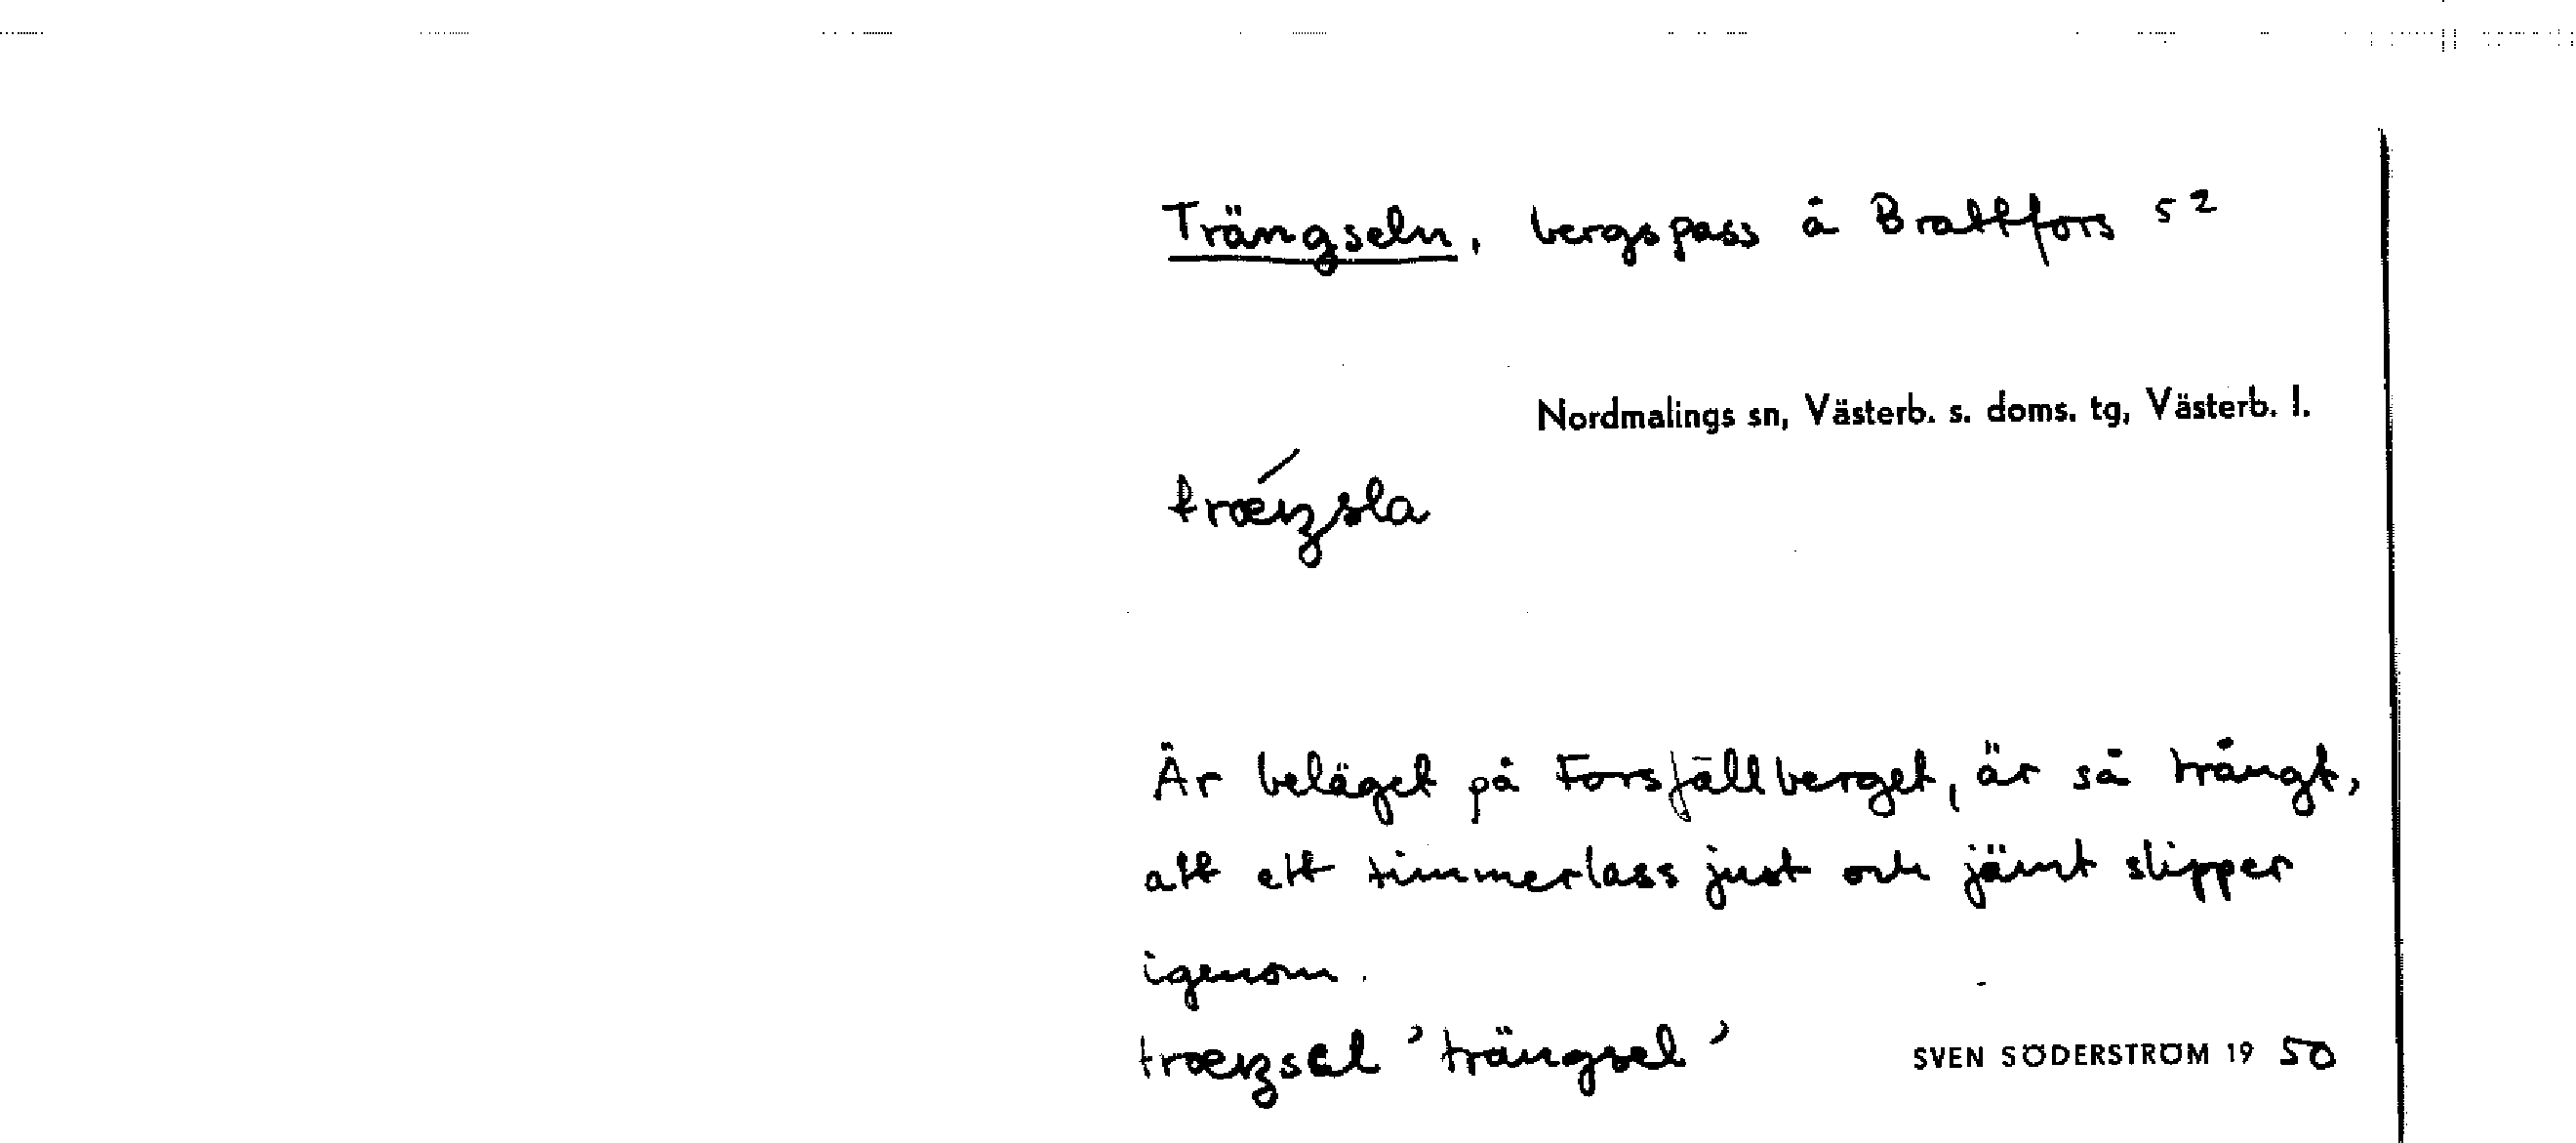 Trängseln, bergspass å Brattfors 5²
Nordmalings sn, Västerb. s. doms. tg, Västerb. l.
Är beläget på Forsfällberget, är så trångt,
att ett timmerlass just och jämt slipper
igenom.
'trängsel'
SVEN SÖDERSTRÖM 19 50